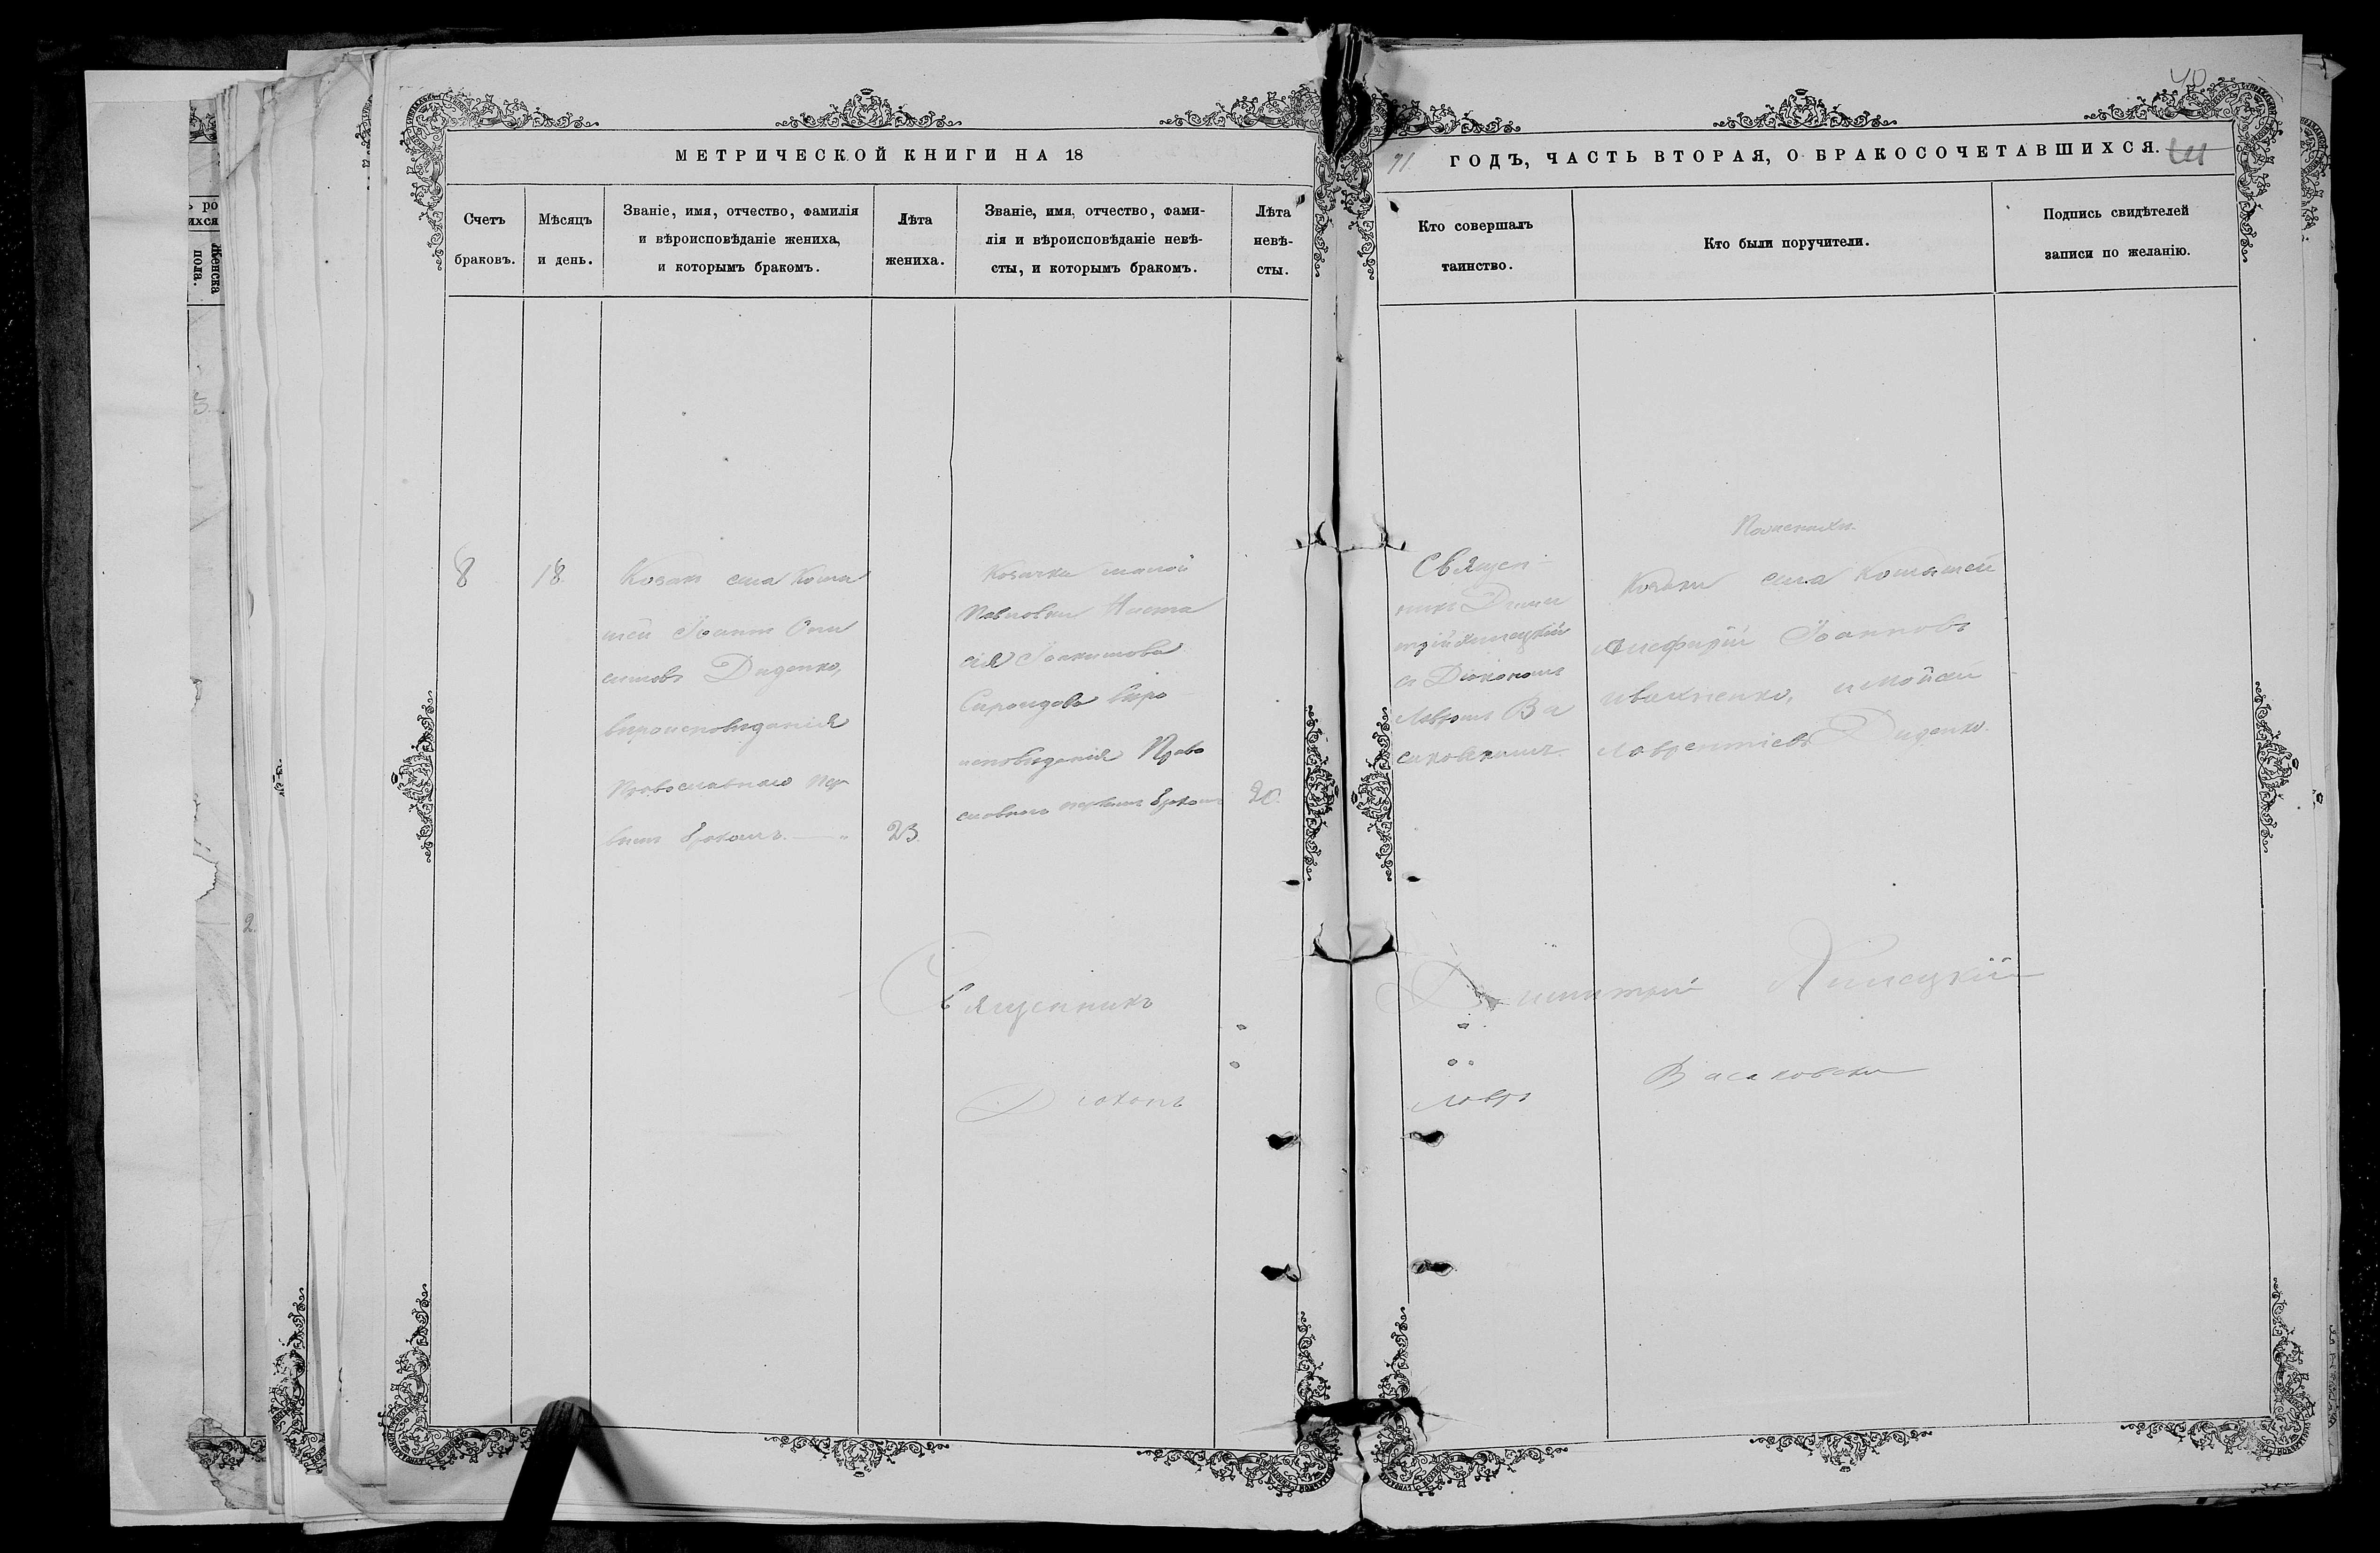 40
МЕТРИЧЕСКОЙ КНИГИ НА 18
71 ГОДЪ, ЧАСТЬ ВТОРАЯ, О БРАКОСОЧЕТАВШИХСЯ.
Счетъ
браковъ.
Мѣсяцъ
и день.
Званіе, имя, отчество, фамилія
и вѣроисповѣданіе жениха,
и которымъ бракомъ.
Лѣта
жениха.
Званіе, имя, отчество, фами-
лія и вѣроисповѣданіе невѣ-
сты, и которымъ бракомъ.
Лѣта
невѣ-
сты.
Кто совершалъ
таинство.
Кто были поручители.
Подпись свидѣтелей
записи по желанію.
8
18.
Козакъ села
Іоаннъ
Диденко,
вѣроисповѣданія
Православнаго пер
вымъ бракомъ.
23.
Козачка
Іоакимова
исповѣданія Право
славного первымъ бракомъ
20.
Священ
никъ Дими
трій Химецкій
съ Діякономъ
Лавромъ Ва
саковскимъ
По женихѣ
Козаки села
Іоанновъ
Ивахненко, и Мойсей
Лаврентіевъ Диденко.
Священникъ Димитрій Химецкій
Діаконъ Лавръ Васаковскій
ь ро
ихся
Женска
пола.
5
2.